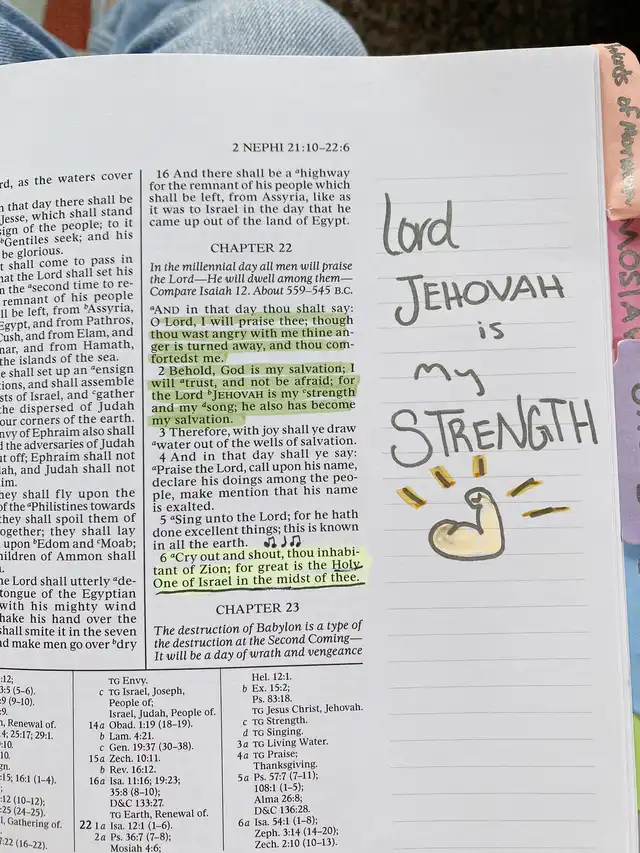 2 NEPHI 21:10–22:6
rd, as the waters cover
n that day there shall be
Jesse, which shall stand
sign of the people; to it
ᵇGentiles seek; and his
be glorious.
t shall come to pass in
hat the Lord shall set his
n the ᵃsecond time to re-
remnant of his people
ll be left, from ᵇAssyria,
Egypt, and from Pathros,
Cush, and from Elam, and
nar, and from Hamath,
the islands of the sea.
e shall set up an ᵃensign
tions, and shall assemble
sts of Israel, and ᶜgather
the dispersed of Judah
our corners of the earth.
nvy of Ephraim also shall
d the adversaries of Judah
ut off; Ephraim shall not
lah, and Judah shall not
im.
hey shall fly upon the
of the ᵃPhilistines towards
they shall spoil them of
together; they shall lay
upon ᵇEdom and ᶜMoab;
hildren of Ammon shall
he Lord shall utterly ᵃde-
tongue of the Egyptian
with his mighty wind
hake his hand over the
shall smite it in the seven
nd make men go over ᵇdry
16 And there shall be a ᵃhighway
for the remnant of his people which
shall be left, from Assyria, like as
it was to Israel in the day that he
came up out of the land of Egypt.
CHAPTER 22
In the millennial day all men will praise
the Lord—He will dwell among them—
Compare Isaiah 12. About 559–545 B.C.
ᵃAND in that day thou shalt say:
O Lord, I will praise thee; though
thou wast angry with me thine an-
ger is turned away, and thou com-
fortedst me.
2 Behold, God is my salvation; I
will ᵃtrust, and not be afraid; for
the Lord ᵇJEHOVAH is my ᶜstrength
and my ᵈsong; he also has become
my salvation.
3 Therefore, with joy shall ye draw
ᵃwater out of the wells of salvation.
4 And in that day shall ye say:
ᵃPraise the Lord, call upon his name,
declare his doings among the peo-
ple, make mention that his name
is exalted.
5 ᵃSing unto the Lord; for he hath
done excellent things; this is known
in all the earth.
6 ᵃCry out and shout, thou inhabi-
tant of Zion; for great is the Holy
One of Israel in the midst of thee.
CHAPTER 23
The destruction of Babylon is a type of
the destruction at the Second Coming—
It will be a day of wrath and vengeance
lord
JEHOVAH
is
my
STRENGTH
Words of Mormon
MOSIA
:12;
3:5 (5–6).
:9 (9–10).
:9.
n, Renewal of.
4; 25:17; 29:1.
:10.
gn.
:15; 16:1 (1–4).
:12 (10–12);
:25 (24–25).
l, Gathering of.
7:22 (16–22).
TG Envy.
c TG Israel, Joseph,
People of;
Israel, Judah, People of.
14a Obad. 1:19 (18–19).
b Lam. 4:21.
c Gen. 19:37 (30–38).
15a Zech. 10:11.
b Rev. 16:12.
16a Isa. 11:16; 19:23;
35:8 (8–10);
D&C 133:27.
TG Earth, Renewal of.
22 1a Isa. 12:1 (1–6).
2a Ps. 36:7 (7–8);
Mosiah 4:6;
Hel. 12:1.
b Ex. 15:2;
Ps. 83:18.
TG Jesus Christ, Jehovah.
c TG Strength.
d TG Singing.
3a TG Living Water.
4a TG Praise;
Thanksgiving.
5a Ps. 57:7 (7–11);
108:1 (1–5);
Alma 26:8;
D&C 136:28.
6a Isa. 54:1 (1–8);
Zeph. 3:14 (14–20);
Zech. 2:10 (10–13).